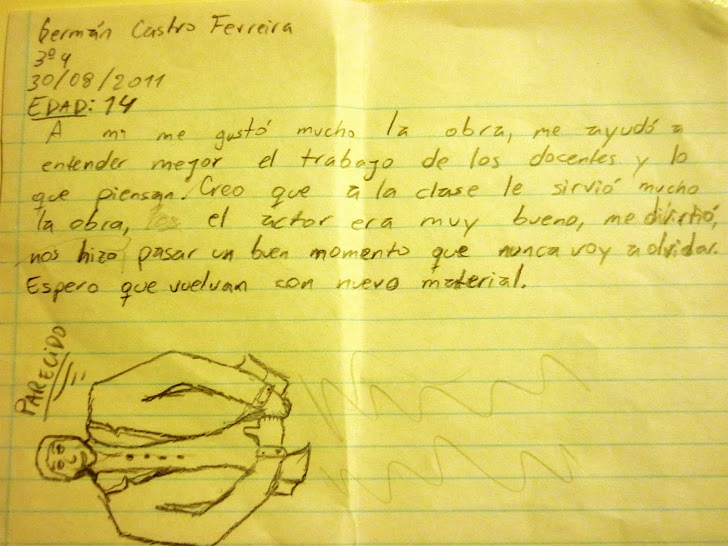 Germán Castro Ferreira
3º4
30/08/2011
EDAD: 14
A mi me gustó mucho la obra, me ayudó a
entender mejor el trabajo de los docentes y lo
que piensan. Creo que a la clase le sirvió mucho
la obra, el actor era muy bueno, me divirtió,
nos hizo pasar un buen momento que nunca voy a olvidar.
Espero que vuelvan con nuevo material.
PARECIDO